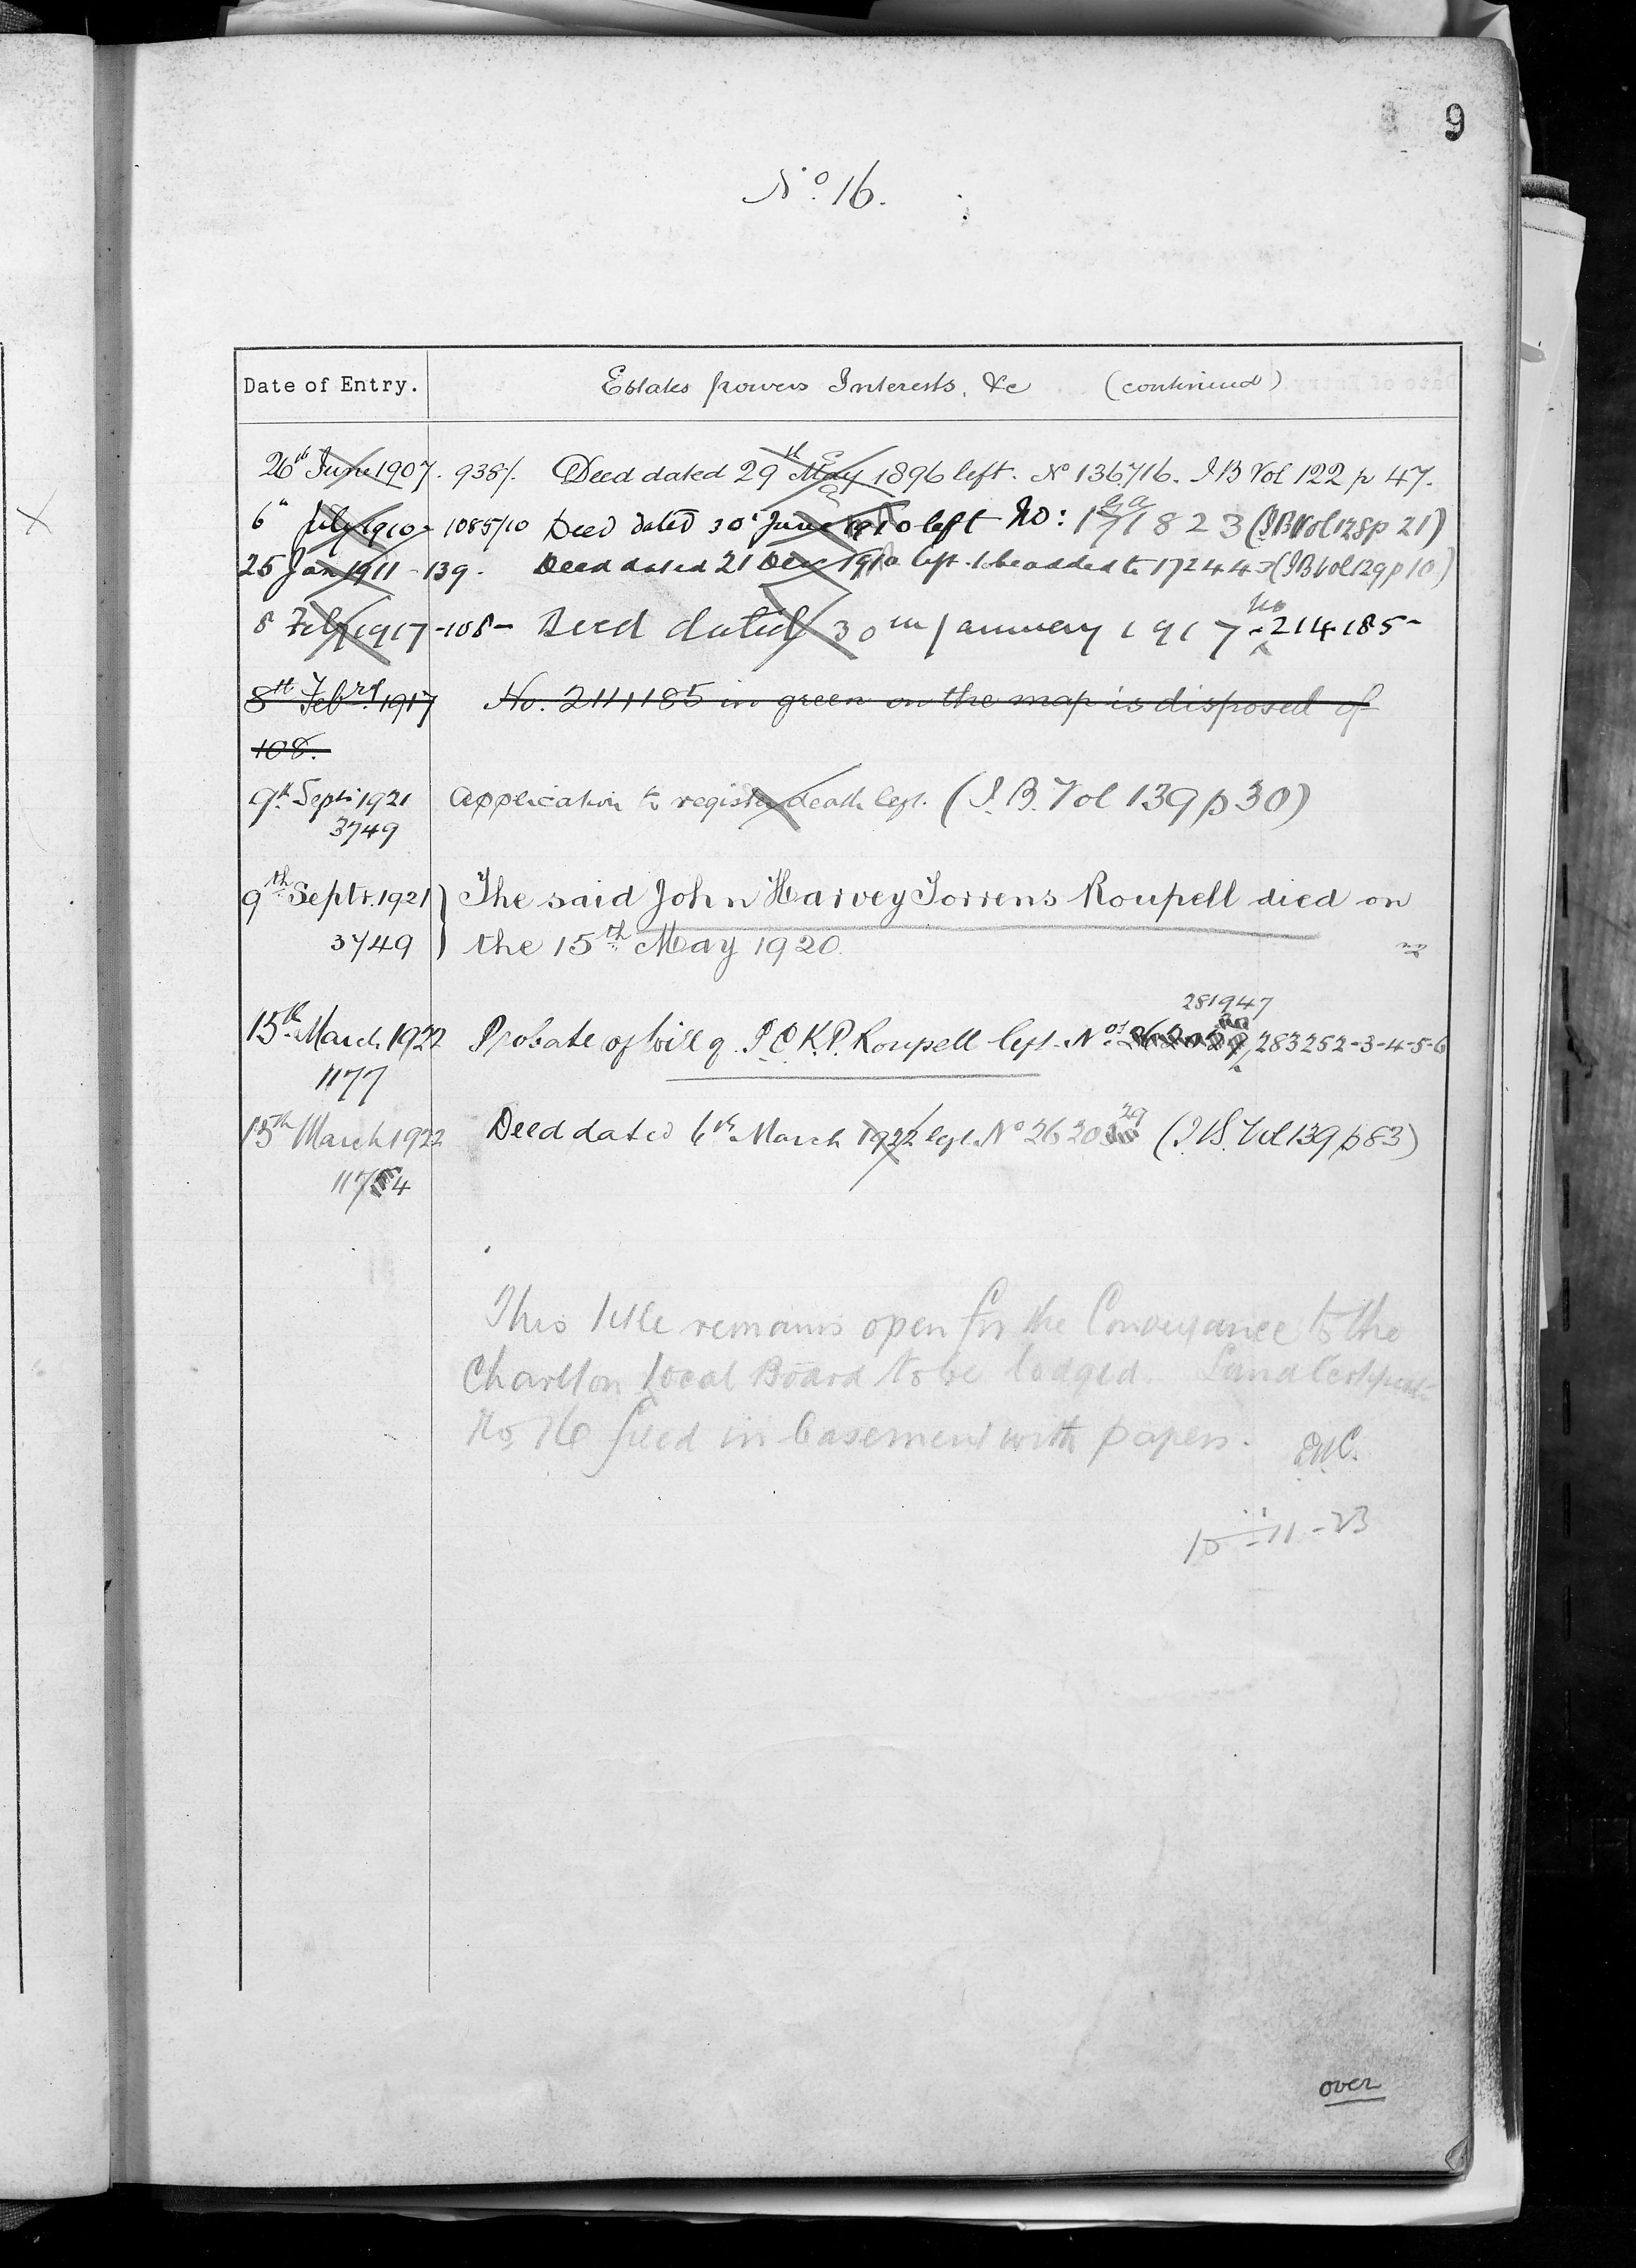 9
No. 16.
Date of Entry. Estates powers Interests, &c (continued)
26th June 1907. 938/. Deed dated 29th May 1896 left. No 136716. I B Vol 122 p 47.
6th July 1910 - 1085/10 Deed dated 30th June 1910 left No: 171823 (I B Vol 128 p 21)
25 Jan 1911 - 139. Deed dated 21 Dec 1910 left. to be added to 172443 (I B Vol 129 p 10)
8 Feby 1917 - 108 - Deed dated 30th January 1917 - No 214185 -
8th Febry 1917 No. 214185 in green on the map is disposed of
108.
9th Septr 1921 Application to register death left. (I. B. Vol 139 p 30)
3749
9th Septr. 1921 The said John Harvey Torrens Roupell died on
3749 the 15th May 1920.
281947
15th March 1922 Probate of Will of P. O. K. P. Roupell left. Nos 283252-3-4-5-6
1177
15th March 1922 Deed dated 6th March 1922 left No 262029 (I. B. Vol 139 p 83)
1174
This title remains open for the Conveyance to the
Charlton Local Board to be lodged. Land Certificate
No. 16 filed in basement with papers.
15-11-23
over